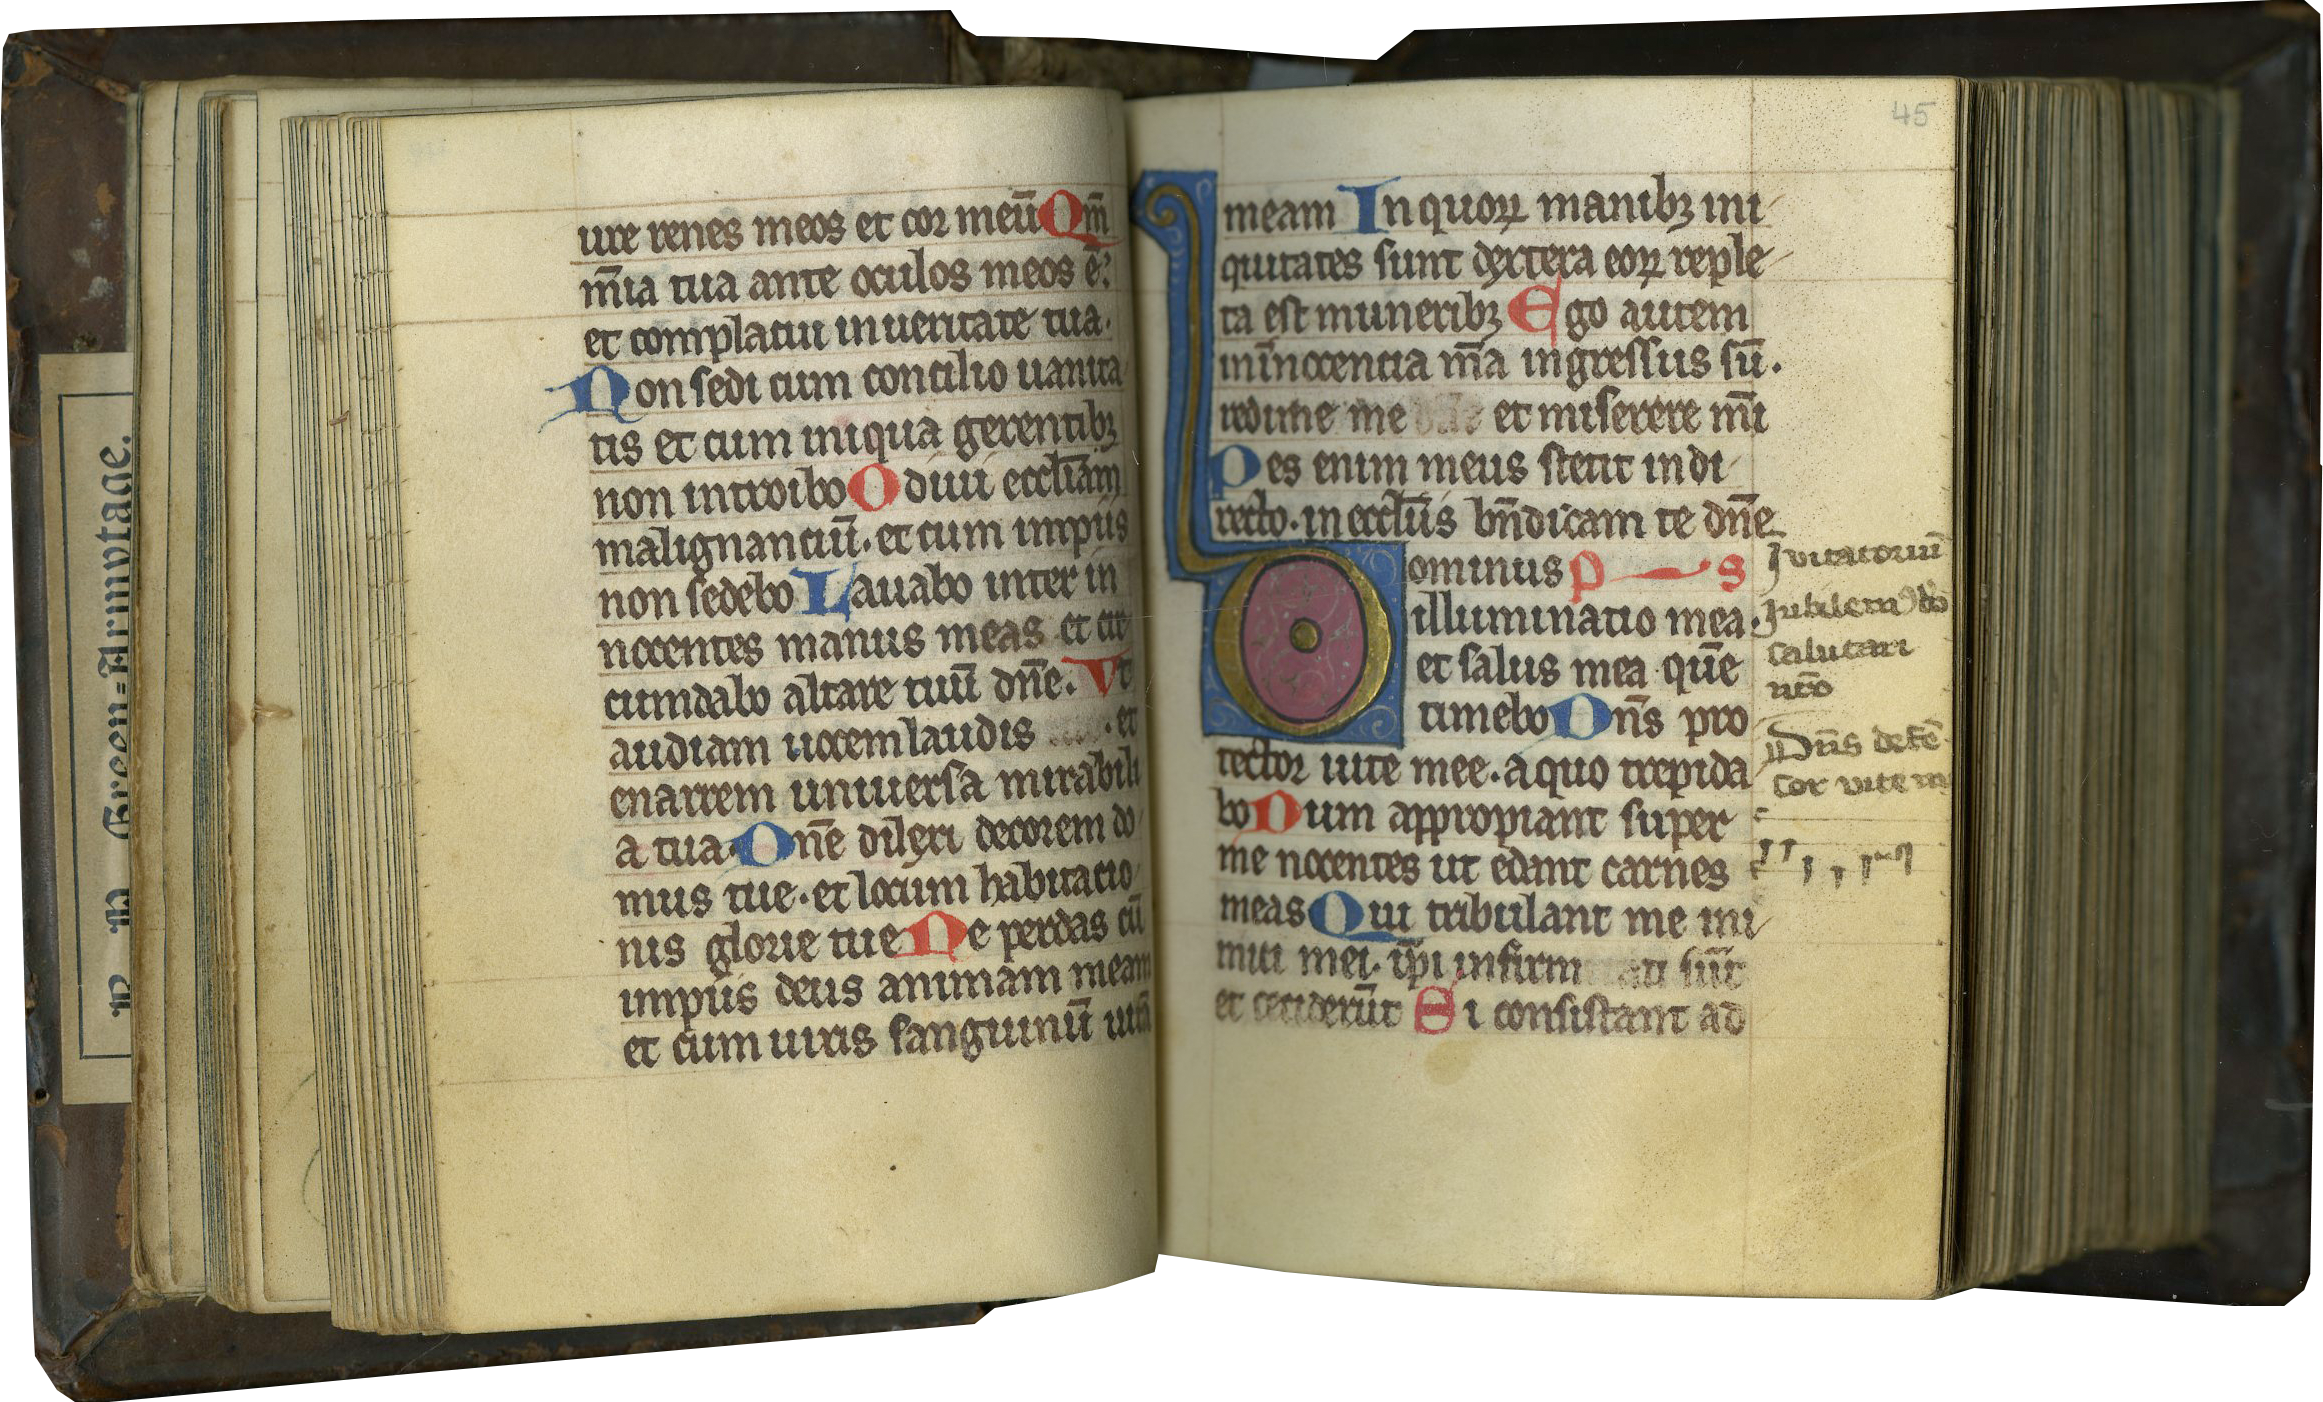 ure renes meos et cor meū Qm̄
m̄ia tua ante oculos meos ē.
et complacui in ueritate tua.
Non sedi cum concilio uanita
tis et cum iniqua gerentibꝫ
non introibo Odiui eccl̄iam
malignanciū. et cum impiis
non sedebo Lauabo inter in
nocentes manus meas et cir
cumdabo altare tuū dn̄e. Vt
audiam uocem laudis . et
enarrem uniuersa mirabili
a tua. Dn̄e dilexi decorem do
mus tue. et locum habitacio
nis glorie tue Ne perdas cū
impiis deus animam meam
et cum uiris sanguinū uitā
45
meam In quoꝝ manibꝫ ini
quitates sunt dextera eoꝝ reple
ta est muneribꝫ Ego autem
in īnocentia m̄a ingressus sū.
redime me et miserere m̄i
Pes enim meus stetit in di
recto. in eccl̄iis bn̄dicam te dn̄e
Dominus p s
illuminatio mea.
et salus mea quē
timebo Dn̄s pro
tector uite mee. a quo trepida
bo Dum appropiant super
me nocentes ut edant carnes
meas Qui tribulant me ini
mici mei. ip̄i infirmati sūt
et ceciderūt Si consistant ad
Jvitatoriū
Jubilem9 dō
salutari
nr̄o
Dn̄s defē
sor vite m
B. B. Green-Armytage.